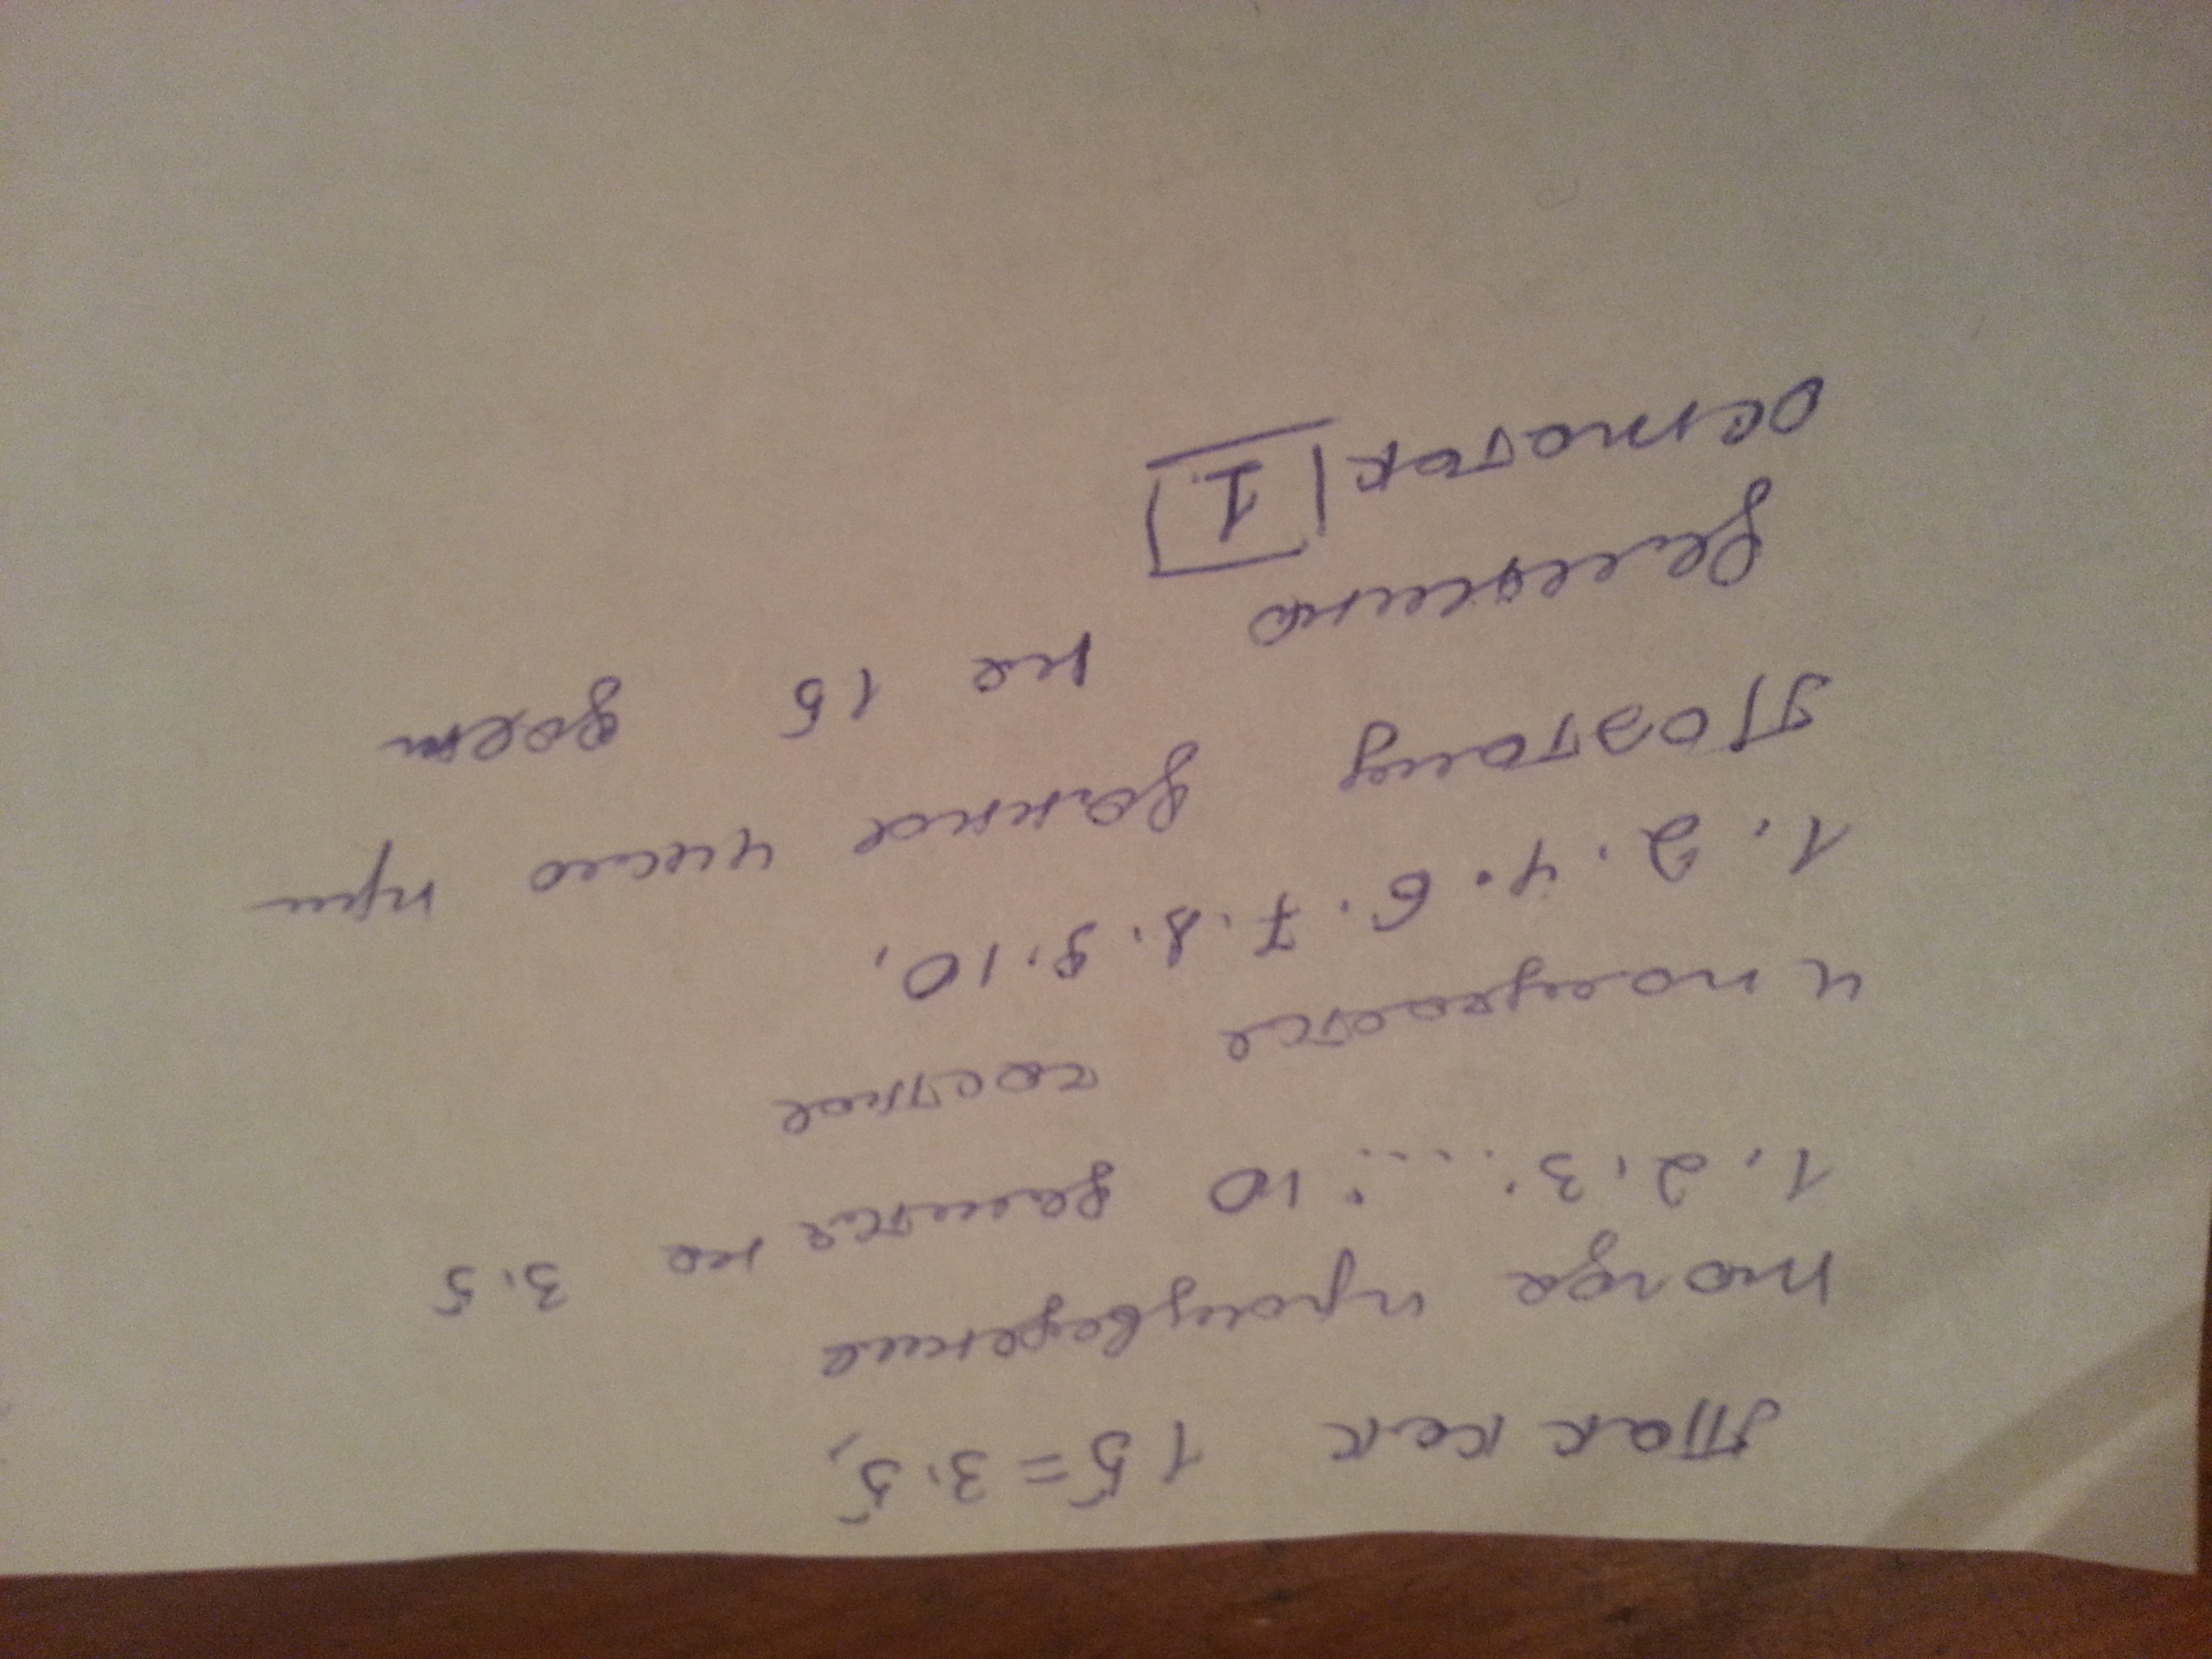 Так как 15=3·5,
тогда произведение
1·2·3·...·10 делится на 3·5
и получается частное
1·2·4·6·7·8·9·10,
Поэтому данное число при
делении на 15 даёт
остаток 1.